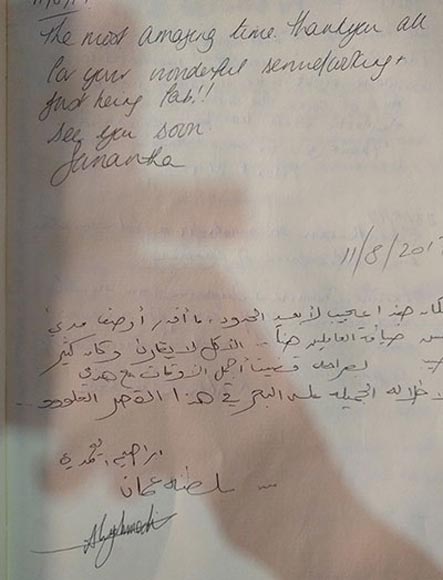 The most amazing time. Thankyou all
for your wonderful service/arting +
just being fab!!
See you soon
Samantha
11/8/2017
هذا عجيب لأبعد الحدود، ما أقدر أوصف مدى
ضيافة العاملين هنا .. الأكل لا يقارن وكان كثير
بصراحة قضينا أجمل الأوقات مع
الجميلة على البحر في هذا القصر
ابراهيم
سلطنة عمان